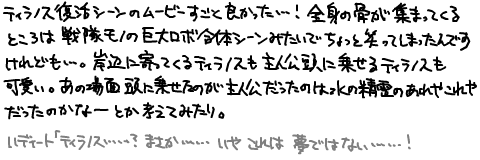 ティラノス復活シーンのムービーすごく良かった…！全身の骨が集まってくる
ところは戦隊モノの巨大ロボ合体シーンみたいでちょっと笑ってしまったんです
けれども…。岸辺に寄ってくるティラノスも主人公頭に乗せるティラノスも
可愛い。あの場面頭に乗せたのが主人公だったのは、水の精霊のあれやこれや
だったのかなーとか考えてみたり。
いディート「ティラノス……？まさか……いやこれは夢ではない……！